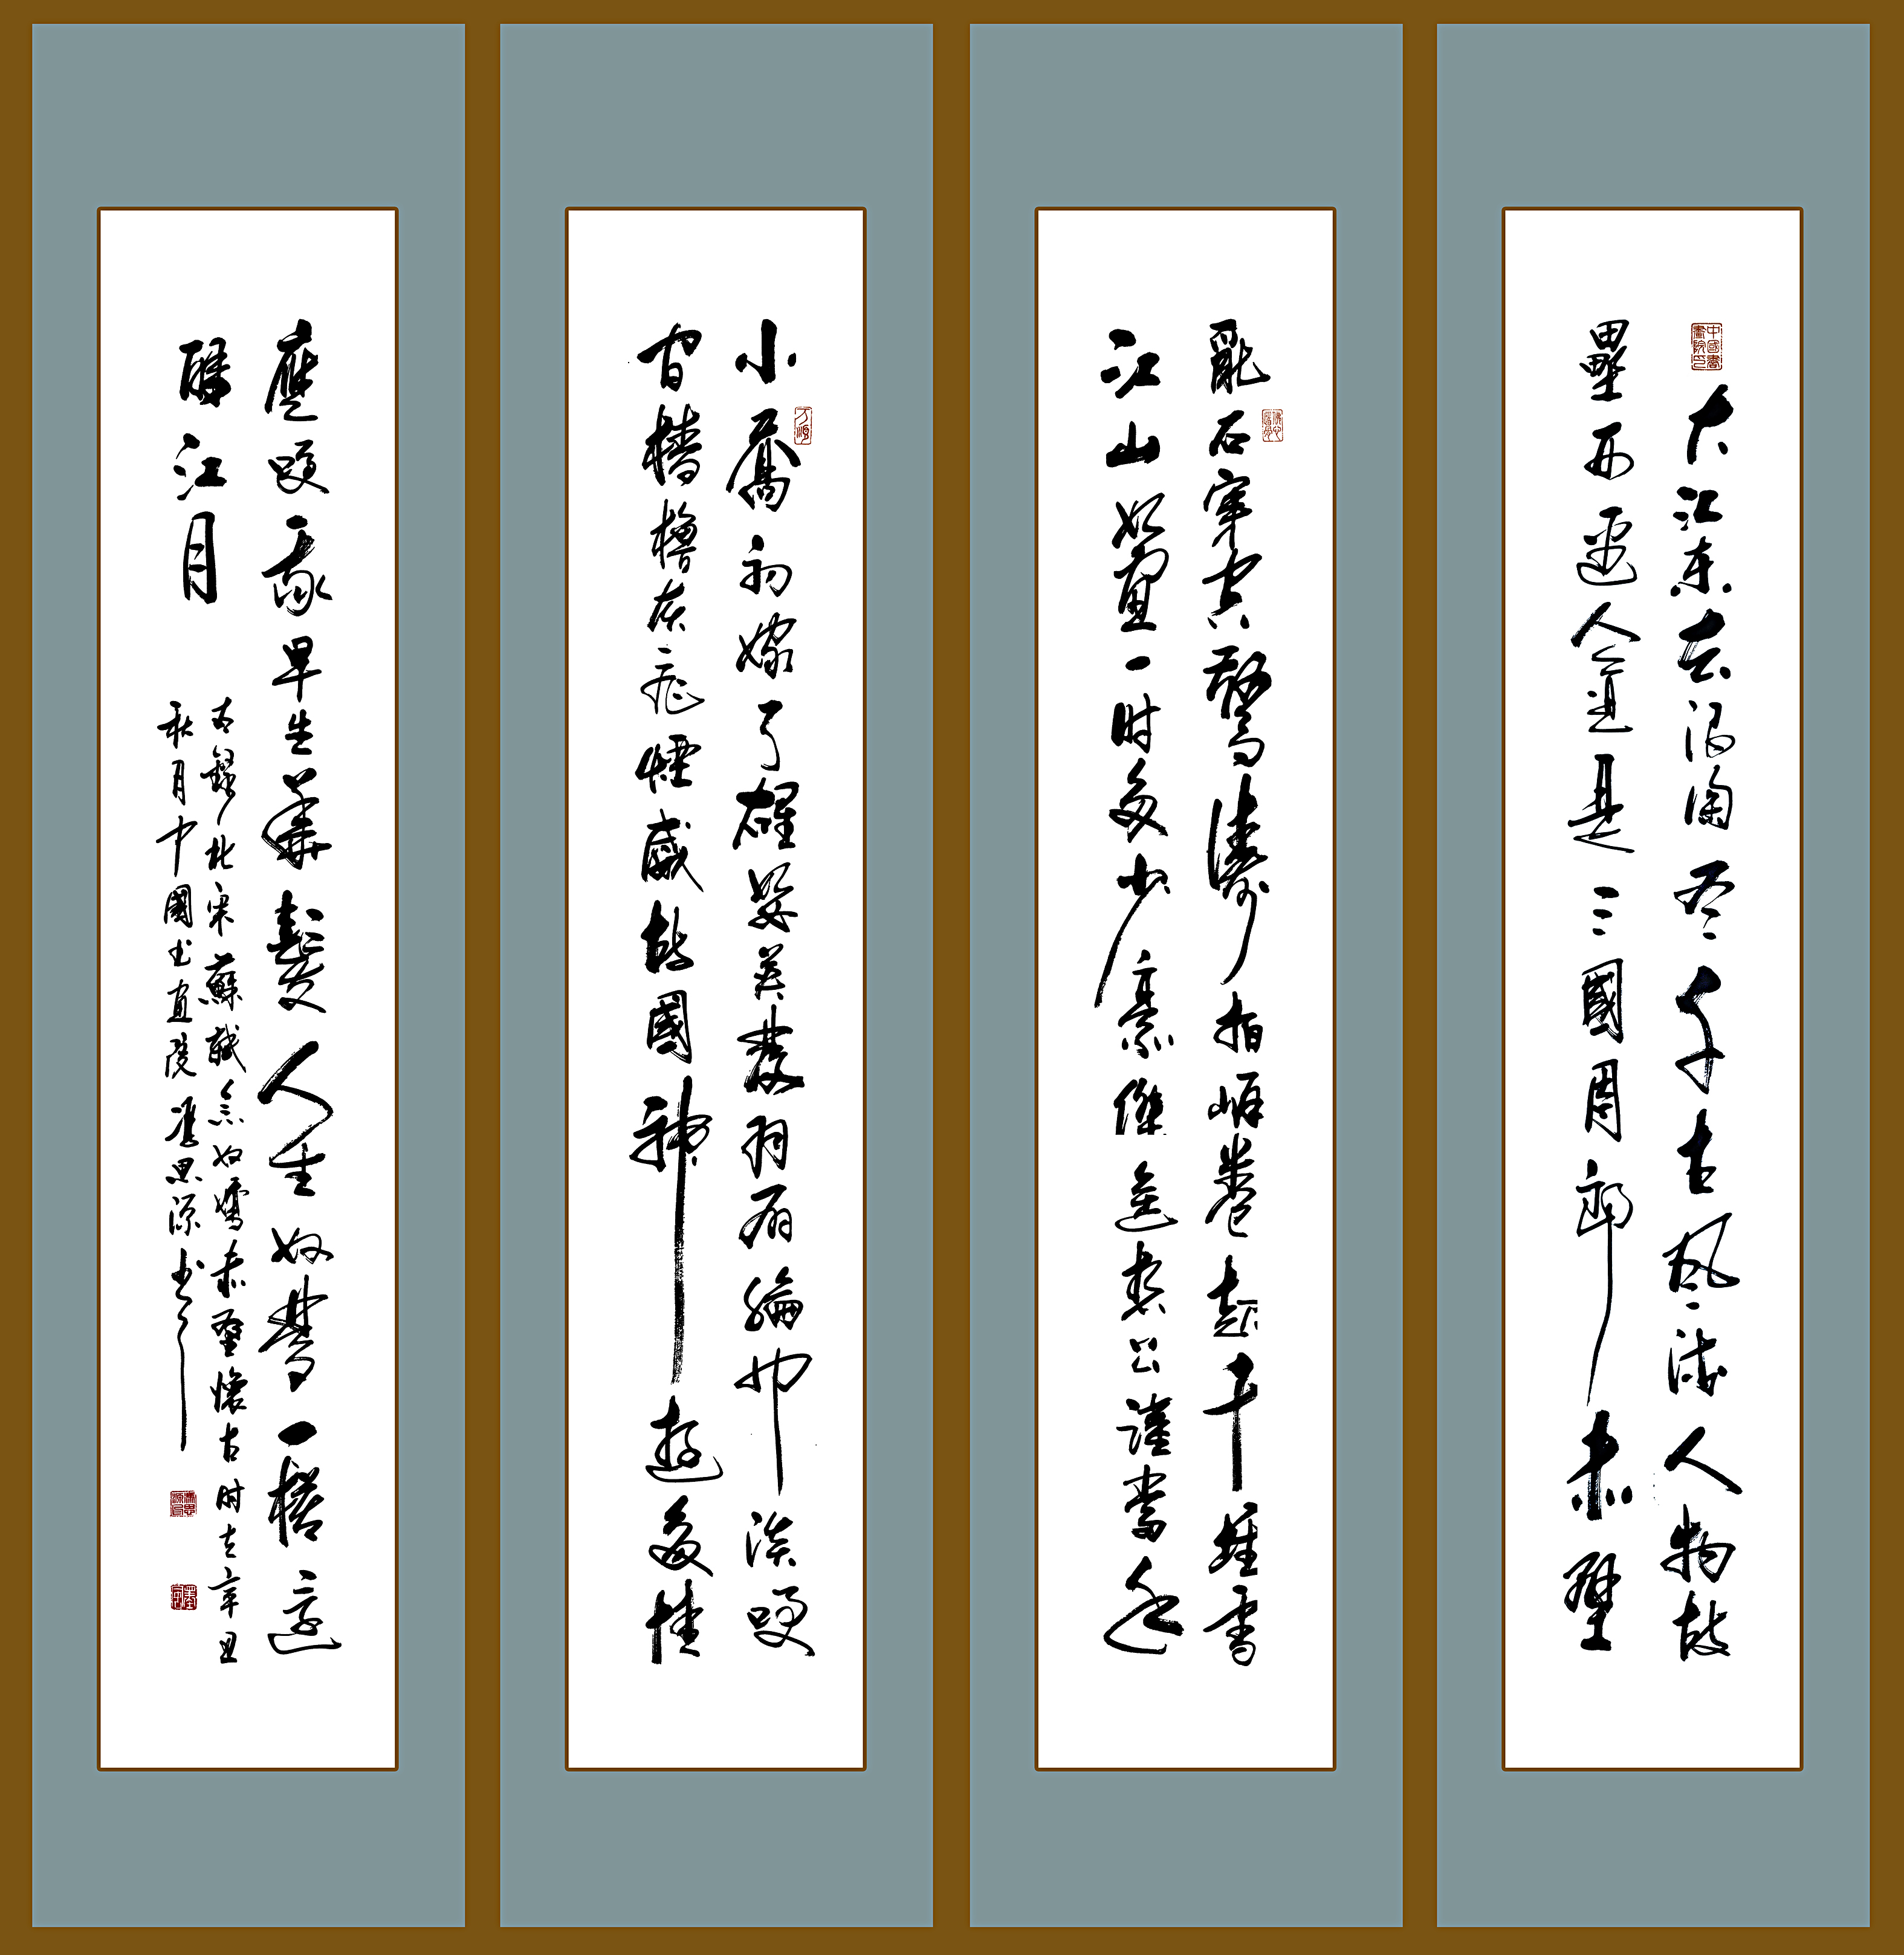 中國書畫院印
大江东去浪淘尽千古风流人物故
壘西邊人道是三國周郎赤壁
亂石穿空驚濤拍岸卷起千堆雪
江山如畫一时多少豪傑遥想公謹當年
小喬初嫁了雄姿英發羽扇綸巾談笑
間檣櫓灰飛煙滅故國神遊多情
應笑我早生華髮人生如夢一樽還
酹江月
右錄北宋蘇軾念奴嬌赤壁懷古时在辛丑
秋月中國书画院馮思源书